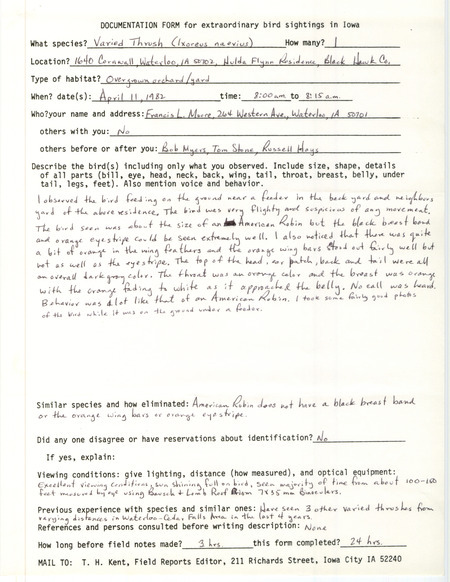 DOCUMENTATION FORM for extraordinary bird sightings in Iowa
What species? Varied Thrush (Ixoreus naevius) How many? 1
Location? 1640 Cornwall, Waterloo, IA 50702, Hulda Flynn Residence, Black Hawk Co.
Type of habitat? Overgrown orchard/yard
When? date(s): April 11, 1982 time: 8:00am to 8:15am.
Who?your name and address: Francis L. Moore, 264 Western Ave., Waterloo, IA 50701
others with you: No
others before or after you: Bob Myers, Tom Stone, Russell Hays
Describe the bird(s) including only what you observed. Include size, shape, details
of all parts (bill, eye, head, neck, back, wing, tail, throat, breast, belly, under
tail, legs, feet). Also mention voice and behavior.
I observed the bird feeding on the ground near a feeder in the back yard and neighbors
yard of the above residence. The bird was very flighty and suspicious of any movement.
The bird seen was about the size of an American Robin but the black breast band
and orange eyestripe could be seen extremely well. I also noticed that there was quite
a bit of orange in the wing feathers and the orange wing bars stood out fairly well but
not as well as the eyestripe. The top of the head, ear patch, back and tail were all
an overall dark gray color. The throat was an orange color and the breast was orange
with the orange fading to white as it approached the belly. No call was heard.
Behavior was alot like that of an American Robin. I took some fairly good photos
of the bird while it was on the ground under a feeder.
Similar species and how eliminated: American Robin does not have a black breast band
or the orange wing bars or orange eyestripe.
Did any one disagree or have reservations about identification? No
If yes, explain:
Viewing conditions: give lighting, distance (how measured), and optical equipment:
Excellent viewing conditions, sun shining full on bird, seen majority of time from about 100-150
feet measured by eye using Bausch & Lomb Roof Prism 7x35 mm Binoculars.
Previous experience with species and similar ones: Have seen 3 other varied thrushes from
varying distances in Waterloo-Cedar Falls Area in the last 4 years.
References and persons consulted before writing description: None
How long before field notes made? 3 hrs. this form completed? 24 hrs.
MAIL TO: T. H. Kent, Field Reports Editor, 211 Richards Street, Iowa City IA 52240